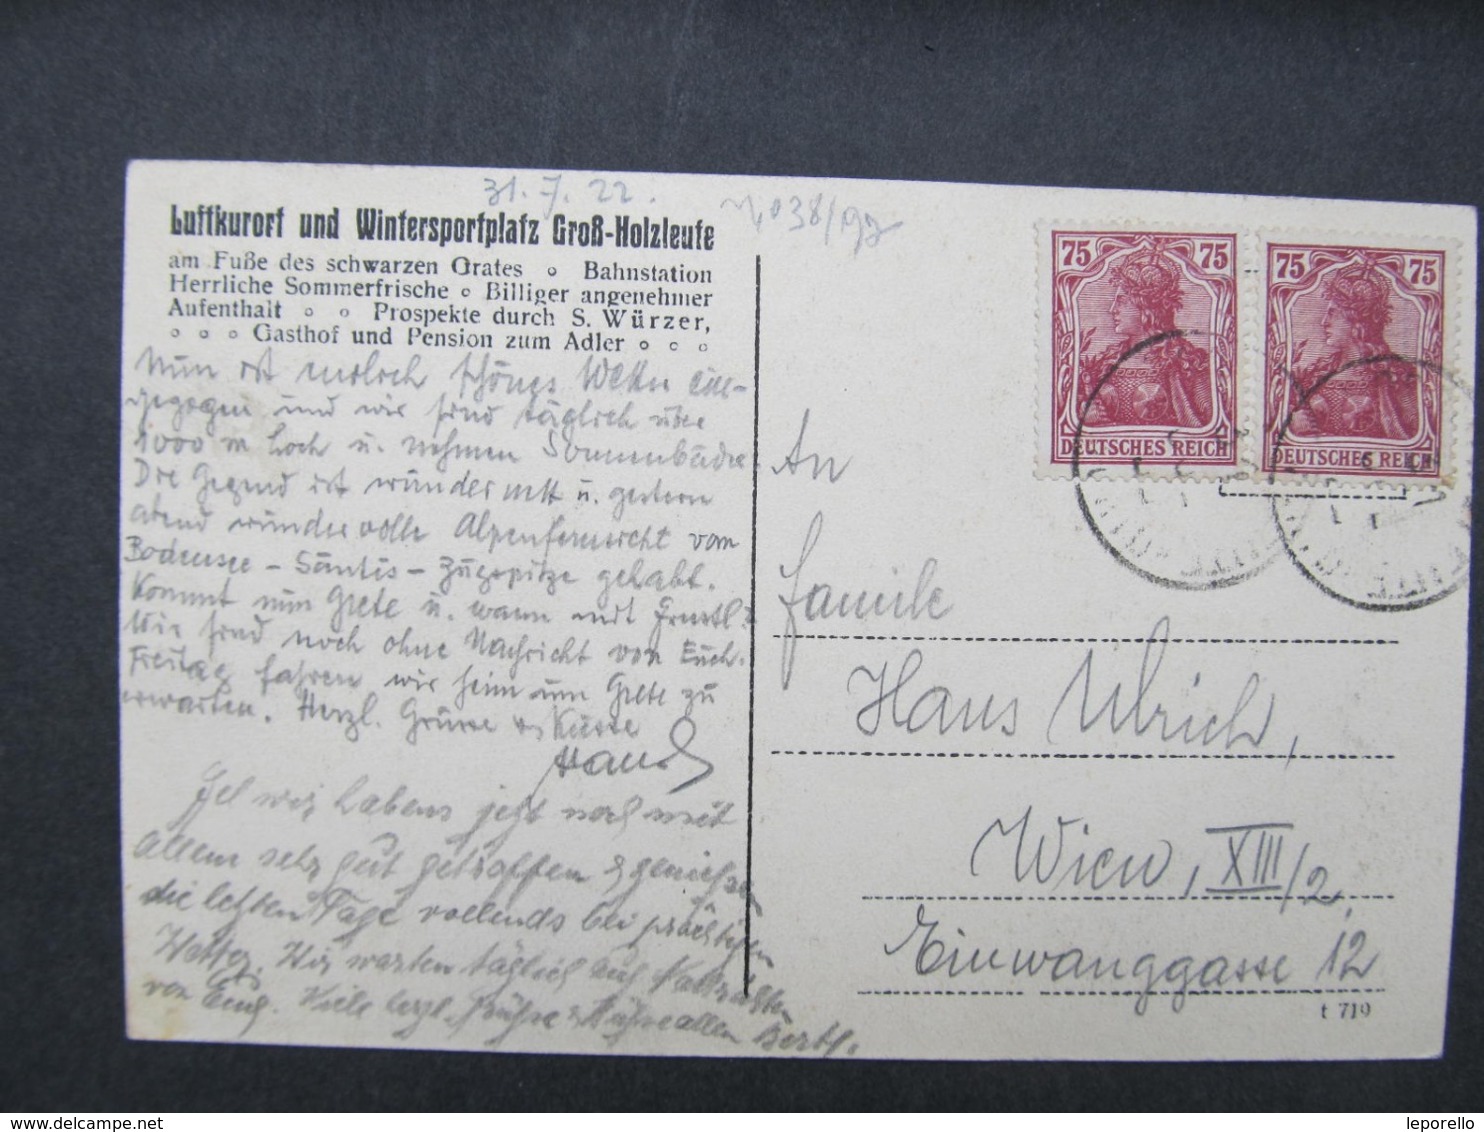 31. 7. 22.
Luftkurort und Wintersportplatz Groß-Holzleute
am Fuße des schwarzen Grates o Bahnstation
Herrliche Sommerfrische o Billiger angenehmer
Aufenthalt o o Prospekte durch S. Würzer,
o o o Gasthof und Pension zum Adler o o o
Nun ist endlich schönes Wetter ein-
gezogen und wir sind täglich über
1000 m hoch u. nehmen Sonnenbäder.
Die Gegend ist wundernett u. gestern
abend wundervolle Alpenfernsicht vom
Bodensee – Säntis – Zugspitze gehabt.
Kommt nun Grete u. wann
Wir sind noch ohne Nachricht von Euch.
Freitag fahren wir heim um Grete zu
erwarten. Herzl. Grüsse & Küsse
wir haben jetzt noch mit
allem sehr gut getroffen & geniessen
die letzten Tage vollends bei prächtigem
Wetter. Wir warten täglich auf Nachricht
von Euch. Viele herzl. Grüsse & Küsse allen
75 75
DEUTSCHES REICH
75 75
DEUTSCHES REICH
An
Familie
Hans Ulrich,
Wien, XIII/2,
Einwanggasse 12
t 719
leporello